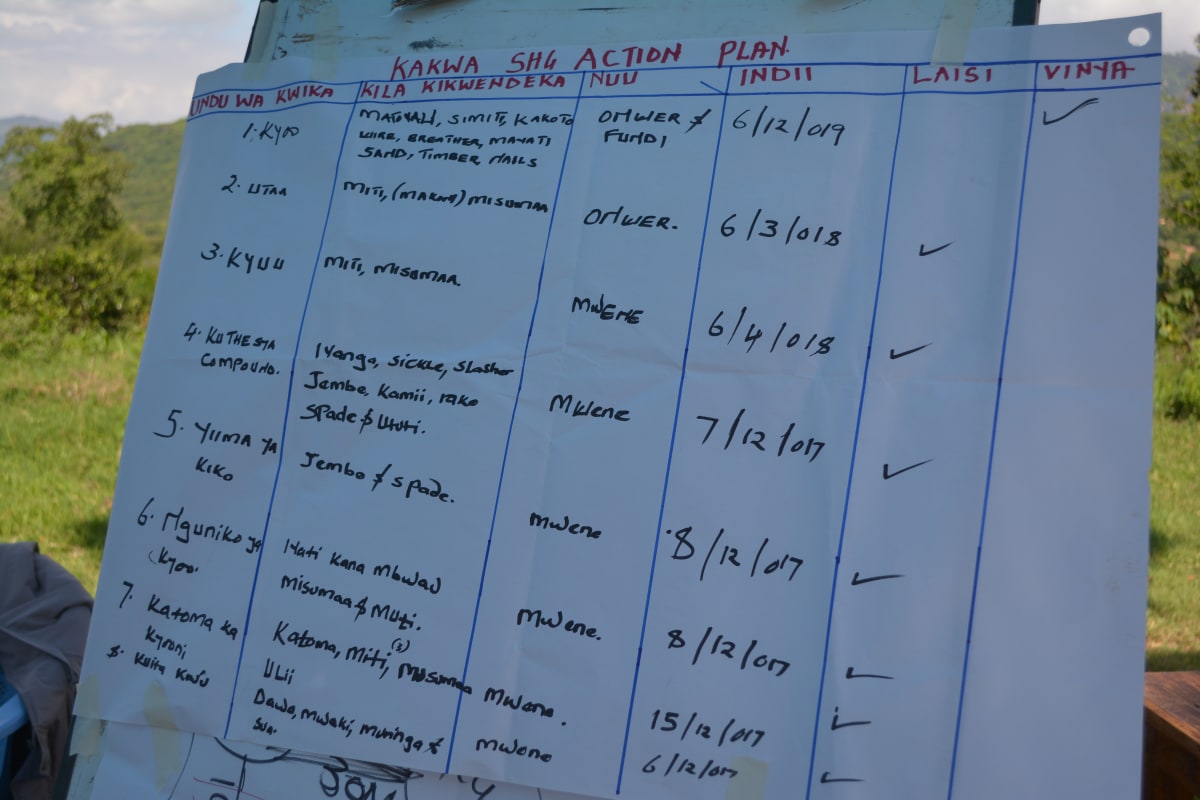 KAKWA SHG ACTION PLAN
UNDU WA KWIKA KILA KIKWENDEKA NUU INDII LAISI VINYA
1. KYOO MATOVALI, SIMITI, KAKOTO OMWER & 6/12/019 ✓
WIRE, BREATHER, MAVATI FUNDI
SAND, TIMBER NAILS
2. UTAA MITI, (MAKOMI) MISUMAA OMWER. 6/3/018 ✓
3. KYUU MITI, MISUMAA. MWENE 6/4/018 ✓
4. KUTHESYA IVANGA, SICKLE, SLASHER MWENE 7/12/017 ✓
COMPOUND. JEMBE, KAMII, RAKE
SPADE & UTUTI.
5. YIIMA YA JEMBE & SPADE. MWENE 8/12/017 ✓
KIKO
6. NGUNIKO YA IVATI KANA MBWAU MWENE. 8/12/017 ✓
KYOO. MISUMAA & MUTI.
7. KATOMA KA KATOMA, MITI, (2) MUSUMAA MWENE. 15/12/017 ✓
KYOONI ULII
8. KUITA KWU DAWA, MWAKI, MURINGA & MWENE 6/12/017 ✓
SUA.